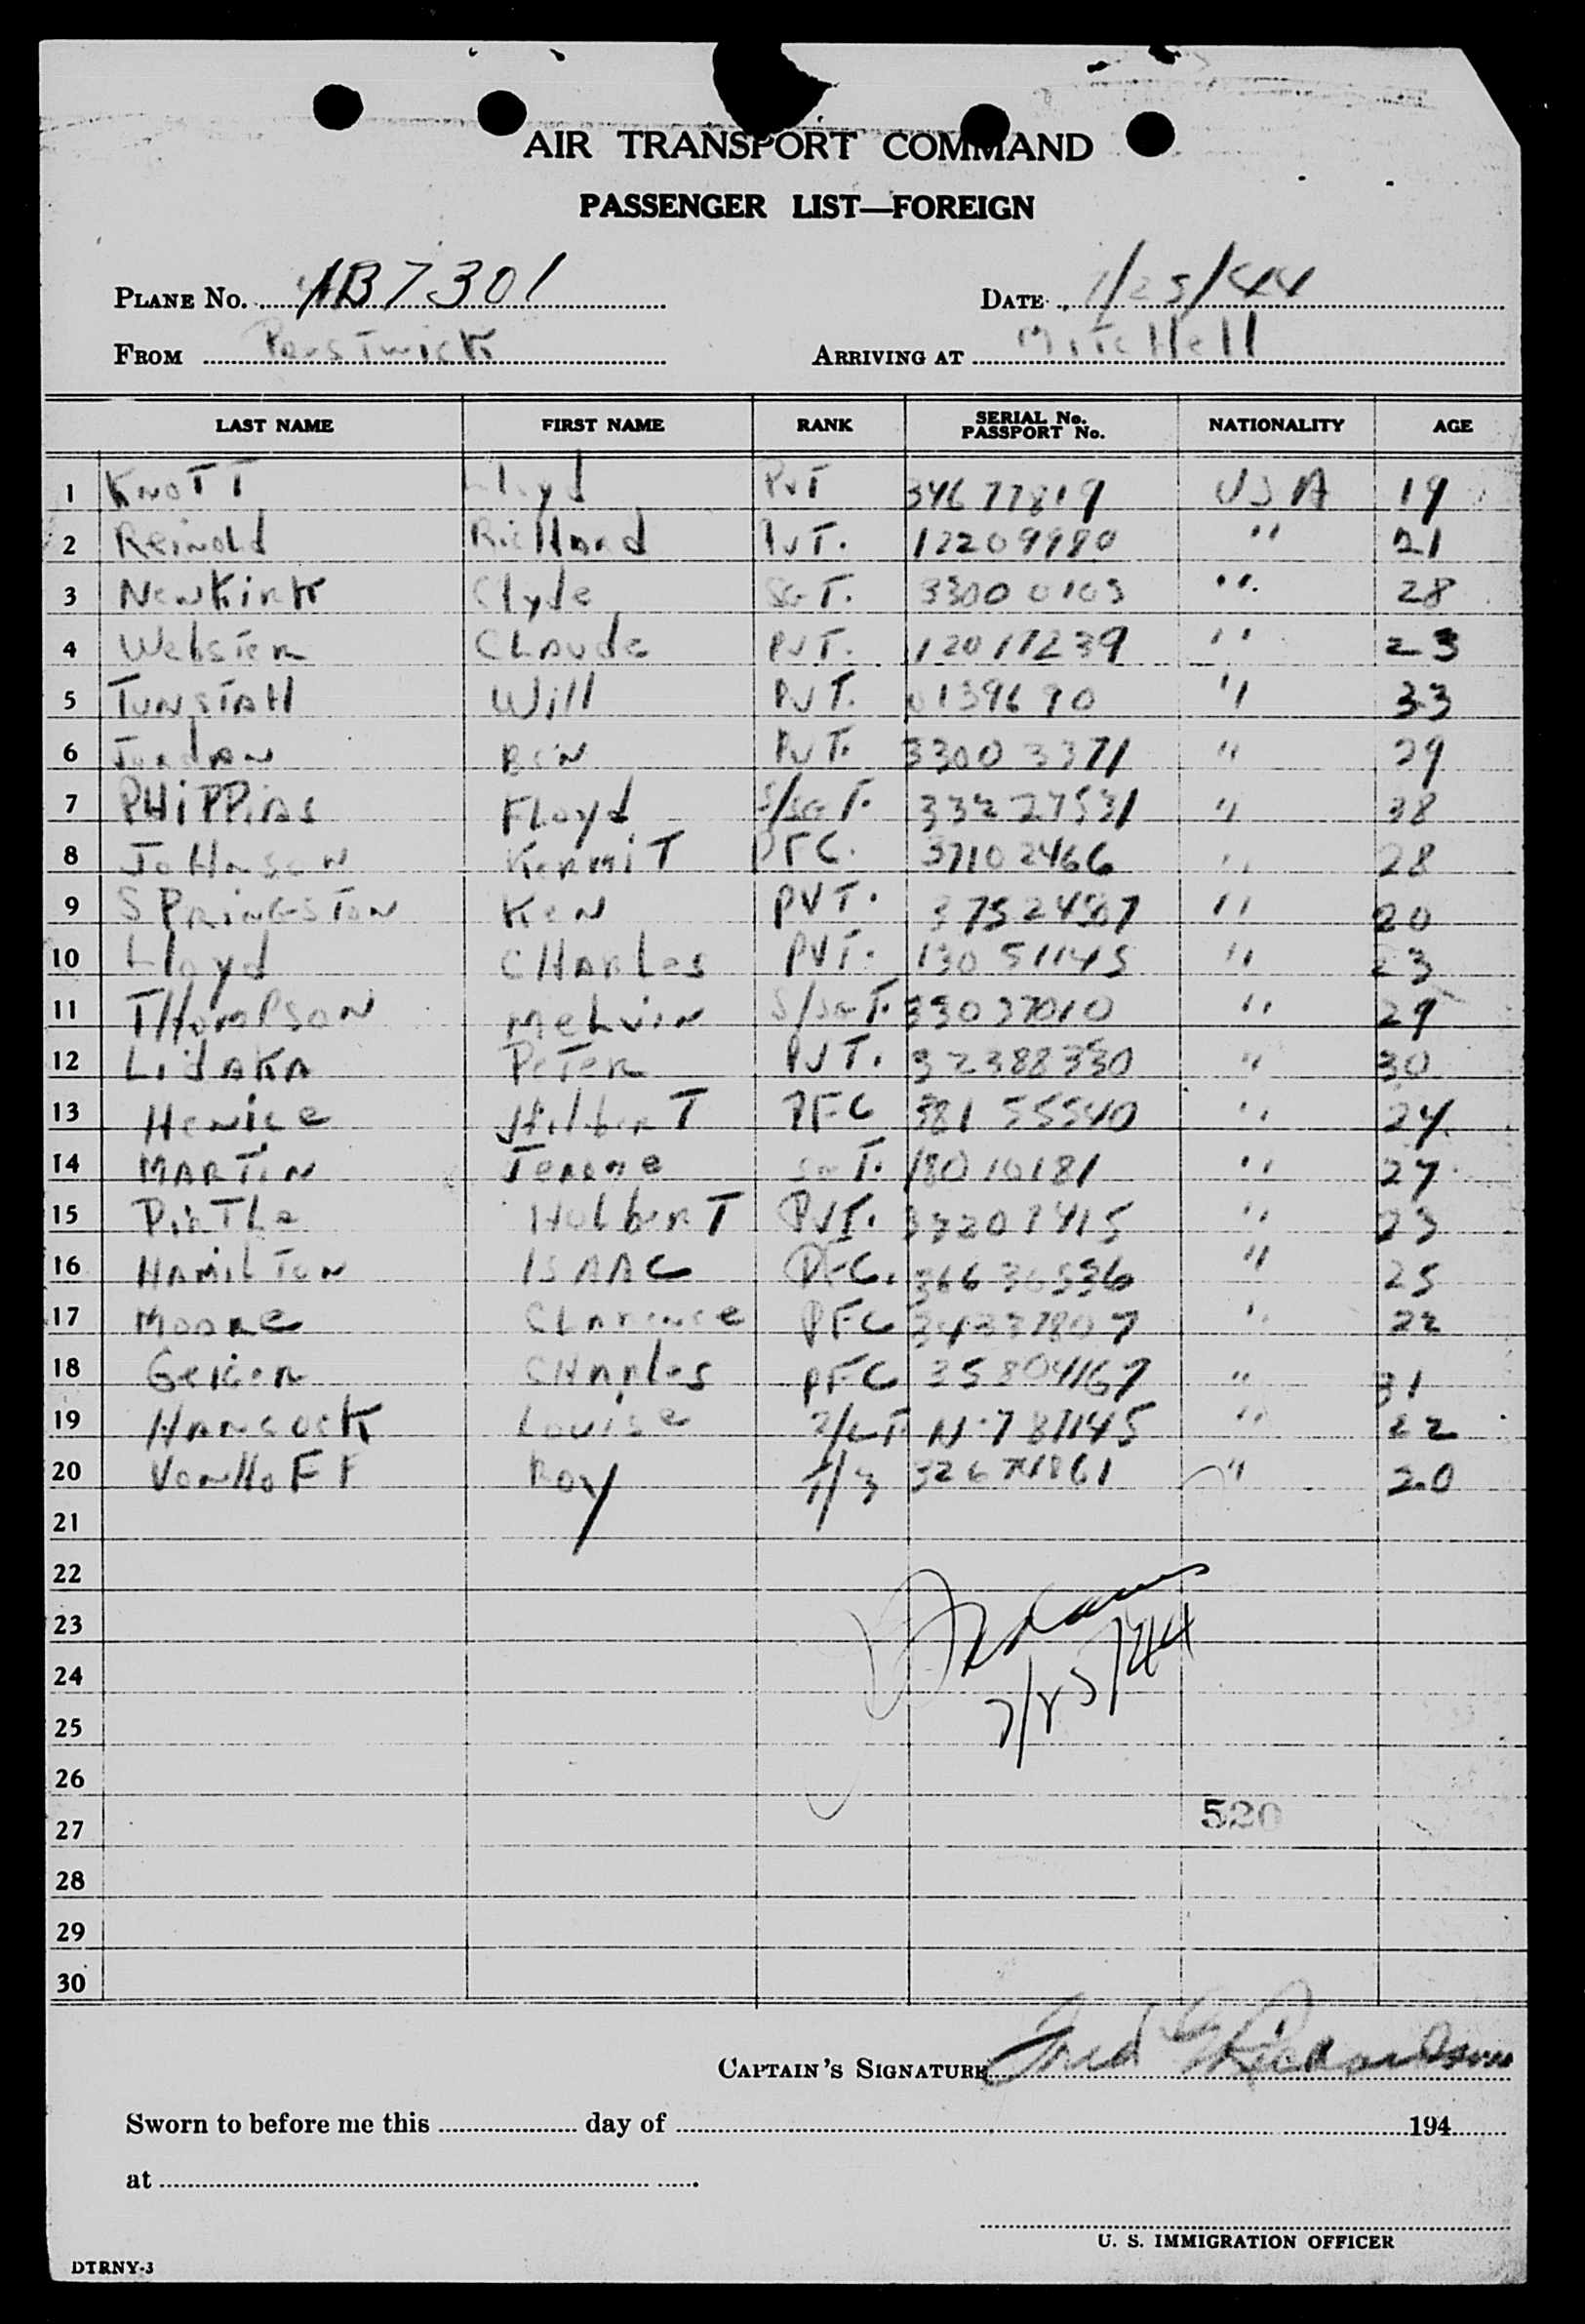 AIR TRANSPORT COMMAND
PASSENGER LIST—FOREIGN
PLANE No. AB7301 DATE 7/25/44
FROM Prestwick ARRIVING AT MitcHell
LAST NAME FIRST NAME RANK SERIAL No. PASSPORT No. NATIONALITY AGE
1 KnoTT Lloyd PvT 34677819 USA 19
2 Reinold RicHard PvT. 12209980 " 21
3 NewKirk Clyde SGT. 33000103 " 28
4 Webster Claude PvT. 12017239 " 23
5 Tunstall Will PvT. 0139690 " 33
6 Jordan Ben PvT. 33003371 " 29
7 PHiPPins Floyd S/SGT. 33227531 " 38
8 JoHnson KermiT PFC. 37102466 " 28
9 SPringston Ken PVT. 37524587 " 20
10 Lloyd CHarles PVT. 13051145 " 23
11 THomPson Melvin S/SGT. 33037010 " 29
12 LidAKA Peter PVT. 32388330 " 30
13 Henice HilberT PFC 38155540 " 24
14 MARTin Jerome SGT. 18010181 " 27
15 PirTle HolberT PVT. 38207415 " 23
16 HAMilTon ISAAC PFC. 36630536 " 25
17 Moore Clarence PFC 34337807 " 22
18 Geiger CHarles PFC 35804167 " 31
19 HancocK Louise 2/LT. N-787145 " 22
20 VonHoFF Roy T/3 32671861 " 20
21
22
23
24 7/25/44
25
26
27 520
28
29
30
CAPTAIN'S SIGNATURE Fred Richardson
Sworn to before me this day of 194
at
U. S. IMMIGRATION OFFICER
DTRNY-3